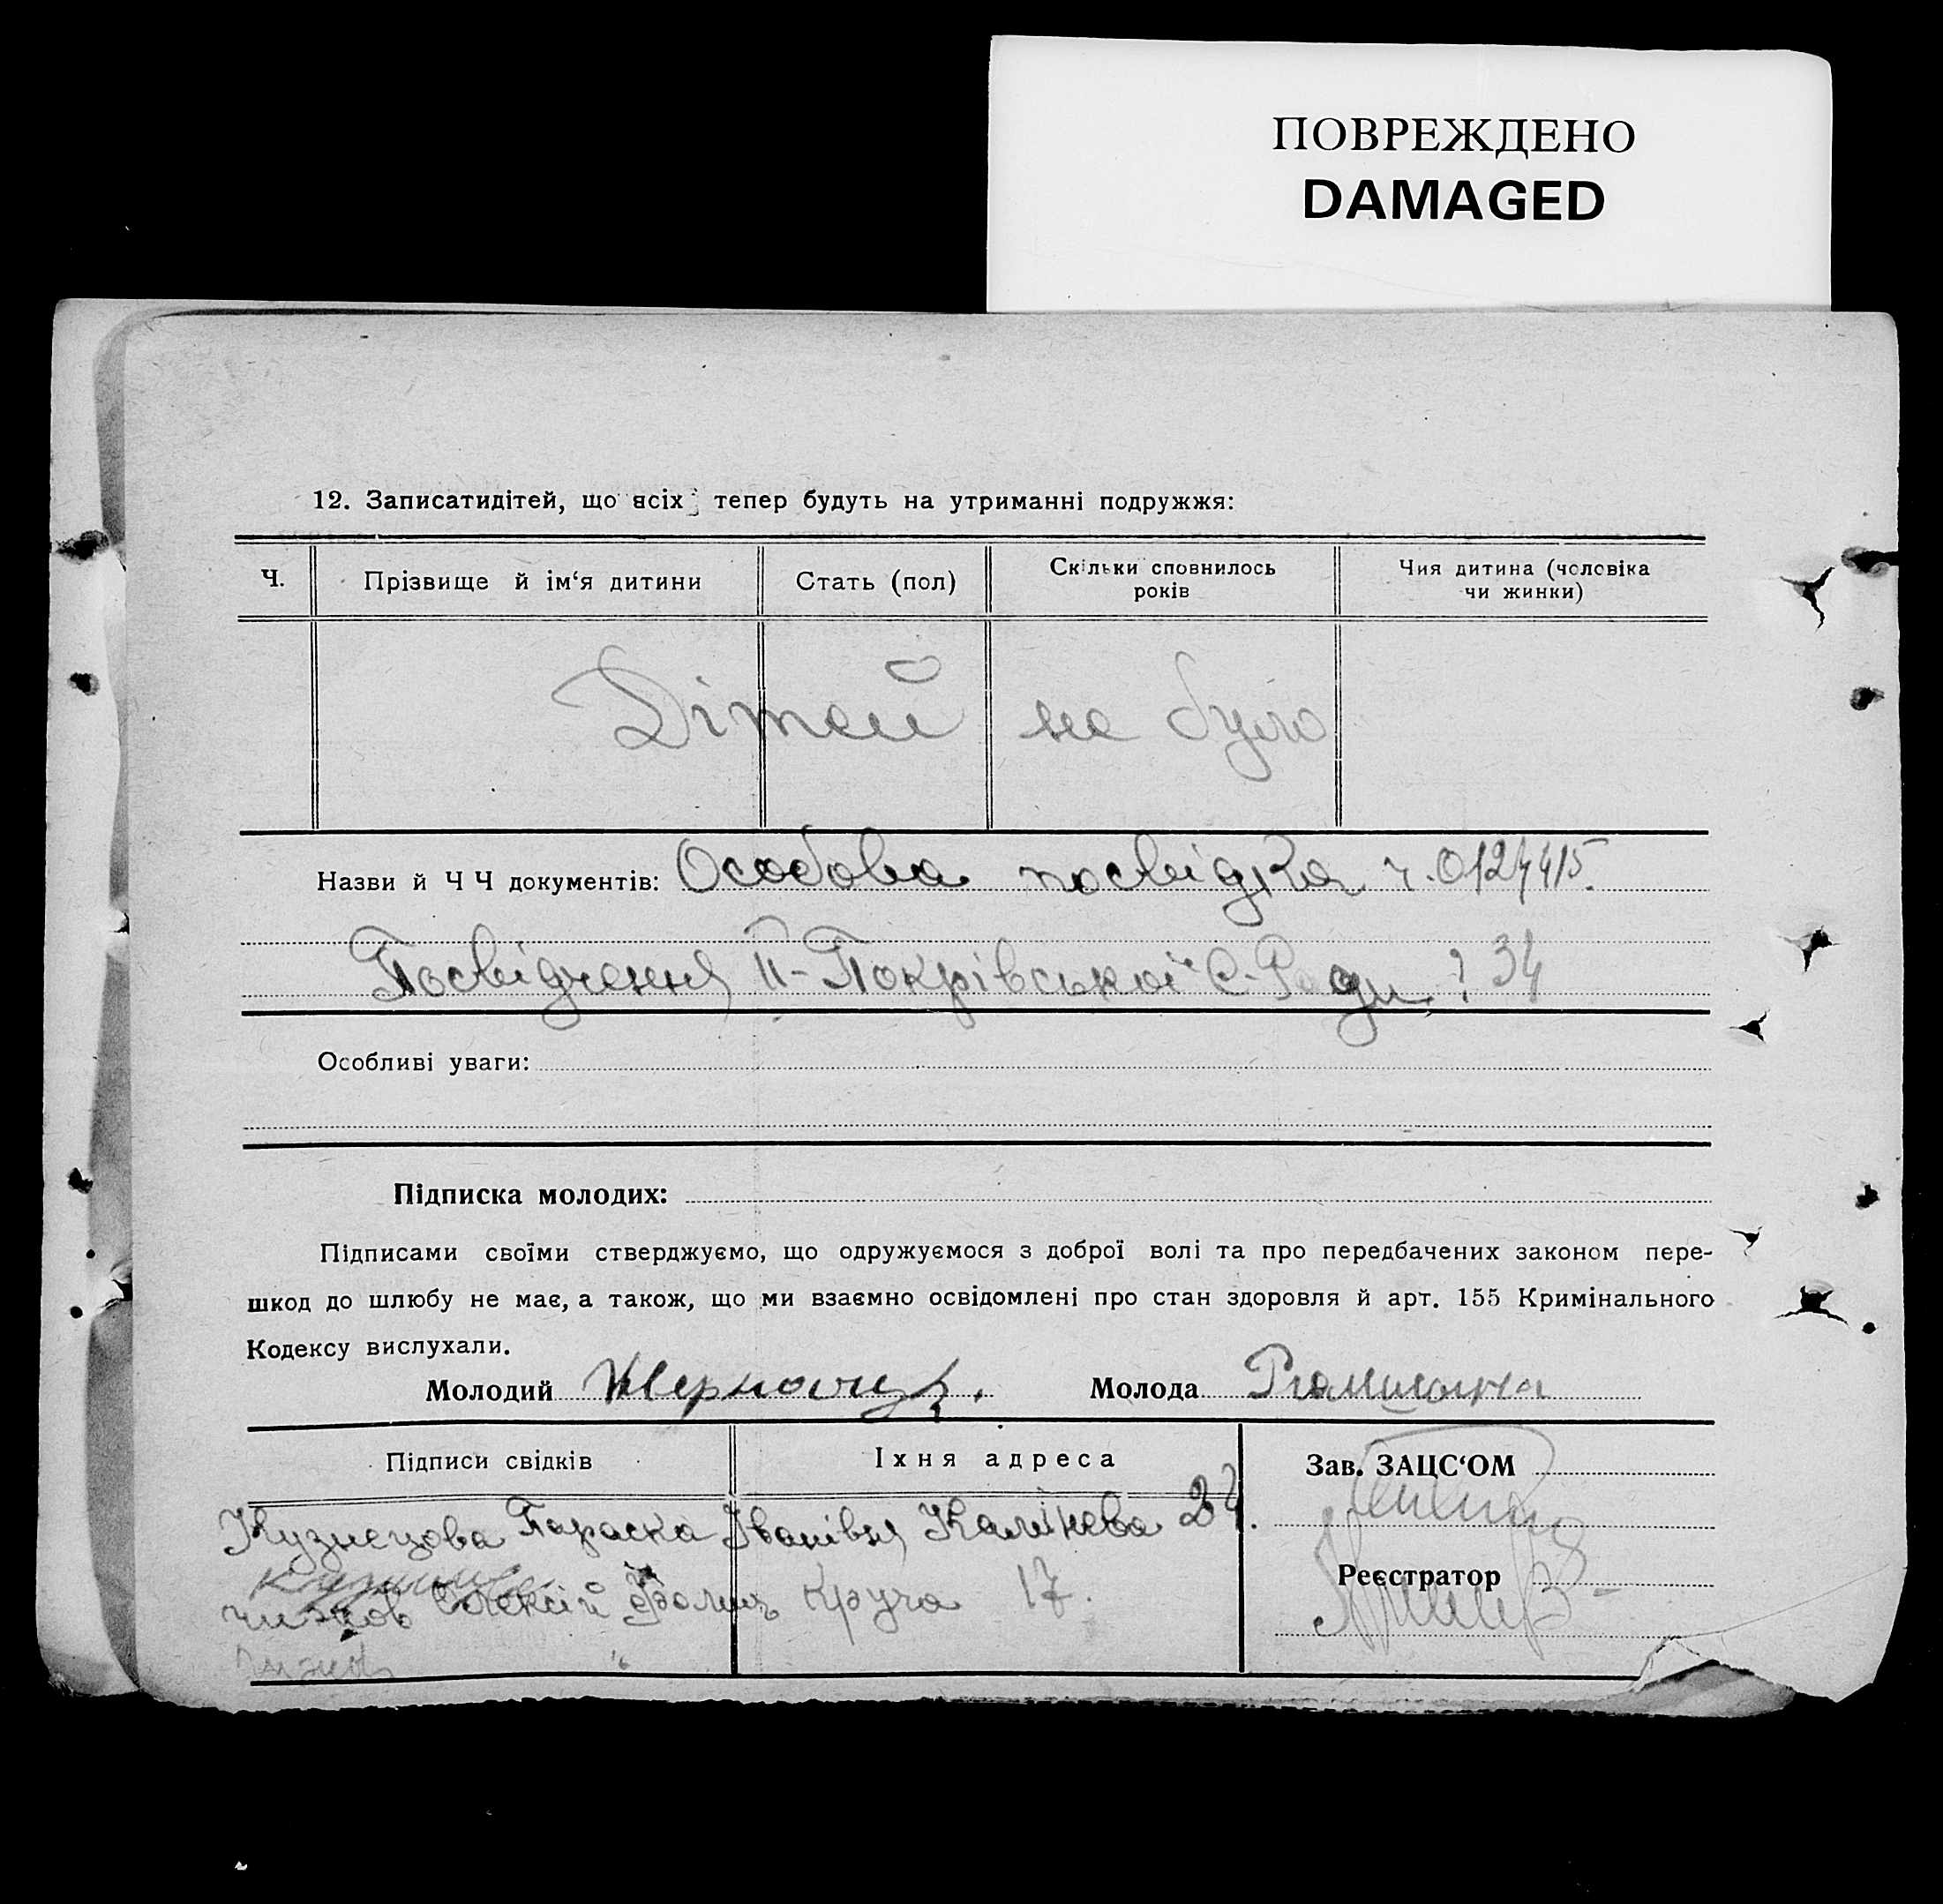 ПОВРЕЖДЕНО
DAMAGED
12. Записатидітей, що всіх тепер будуть на утриманні подружжя:
Ч. Прізвище й ім‘я дитини Стать (пол) Скільки сповнилось років Чия дитина (чоловіка чи жинки)
Дітей не було
Назви й Ч Ч документів: Особова посвідка ч.
Посвідчення ІІ-Покрівської С-Ради 34
Особливі уваги:
Підписка молодих:
Підписами своїми стверджуємо, що одружуємося з доброї волі та про передбачених законом пере-
шкод до шлюбу не має, а також, що ми взаємно освідомлені про стан здоровля й арт. 155 Кримінального
Кодексу вислухали.
Молодий Молода
Підписи свідків Іхня адреса Зав. ЗАЦС‘ОМ
Кузнецова Параска Іванівня 24.
Реєстратор
Чижов Олексій Круча 17.